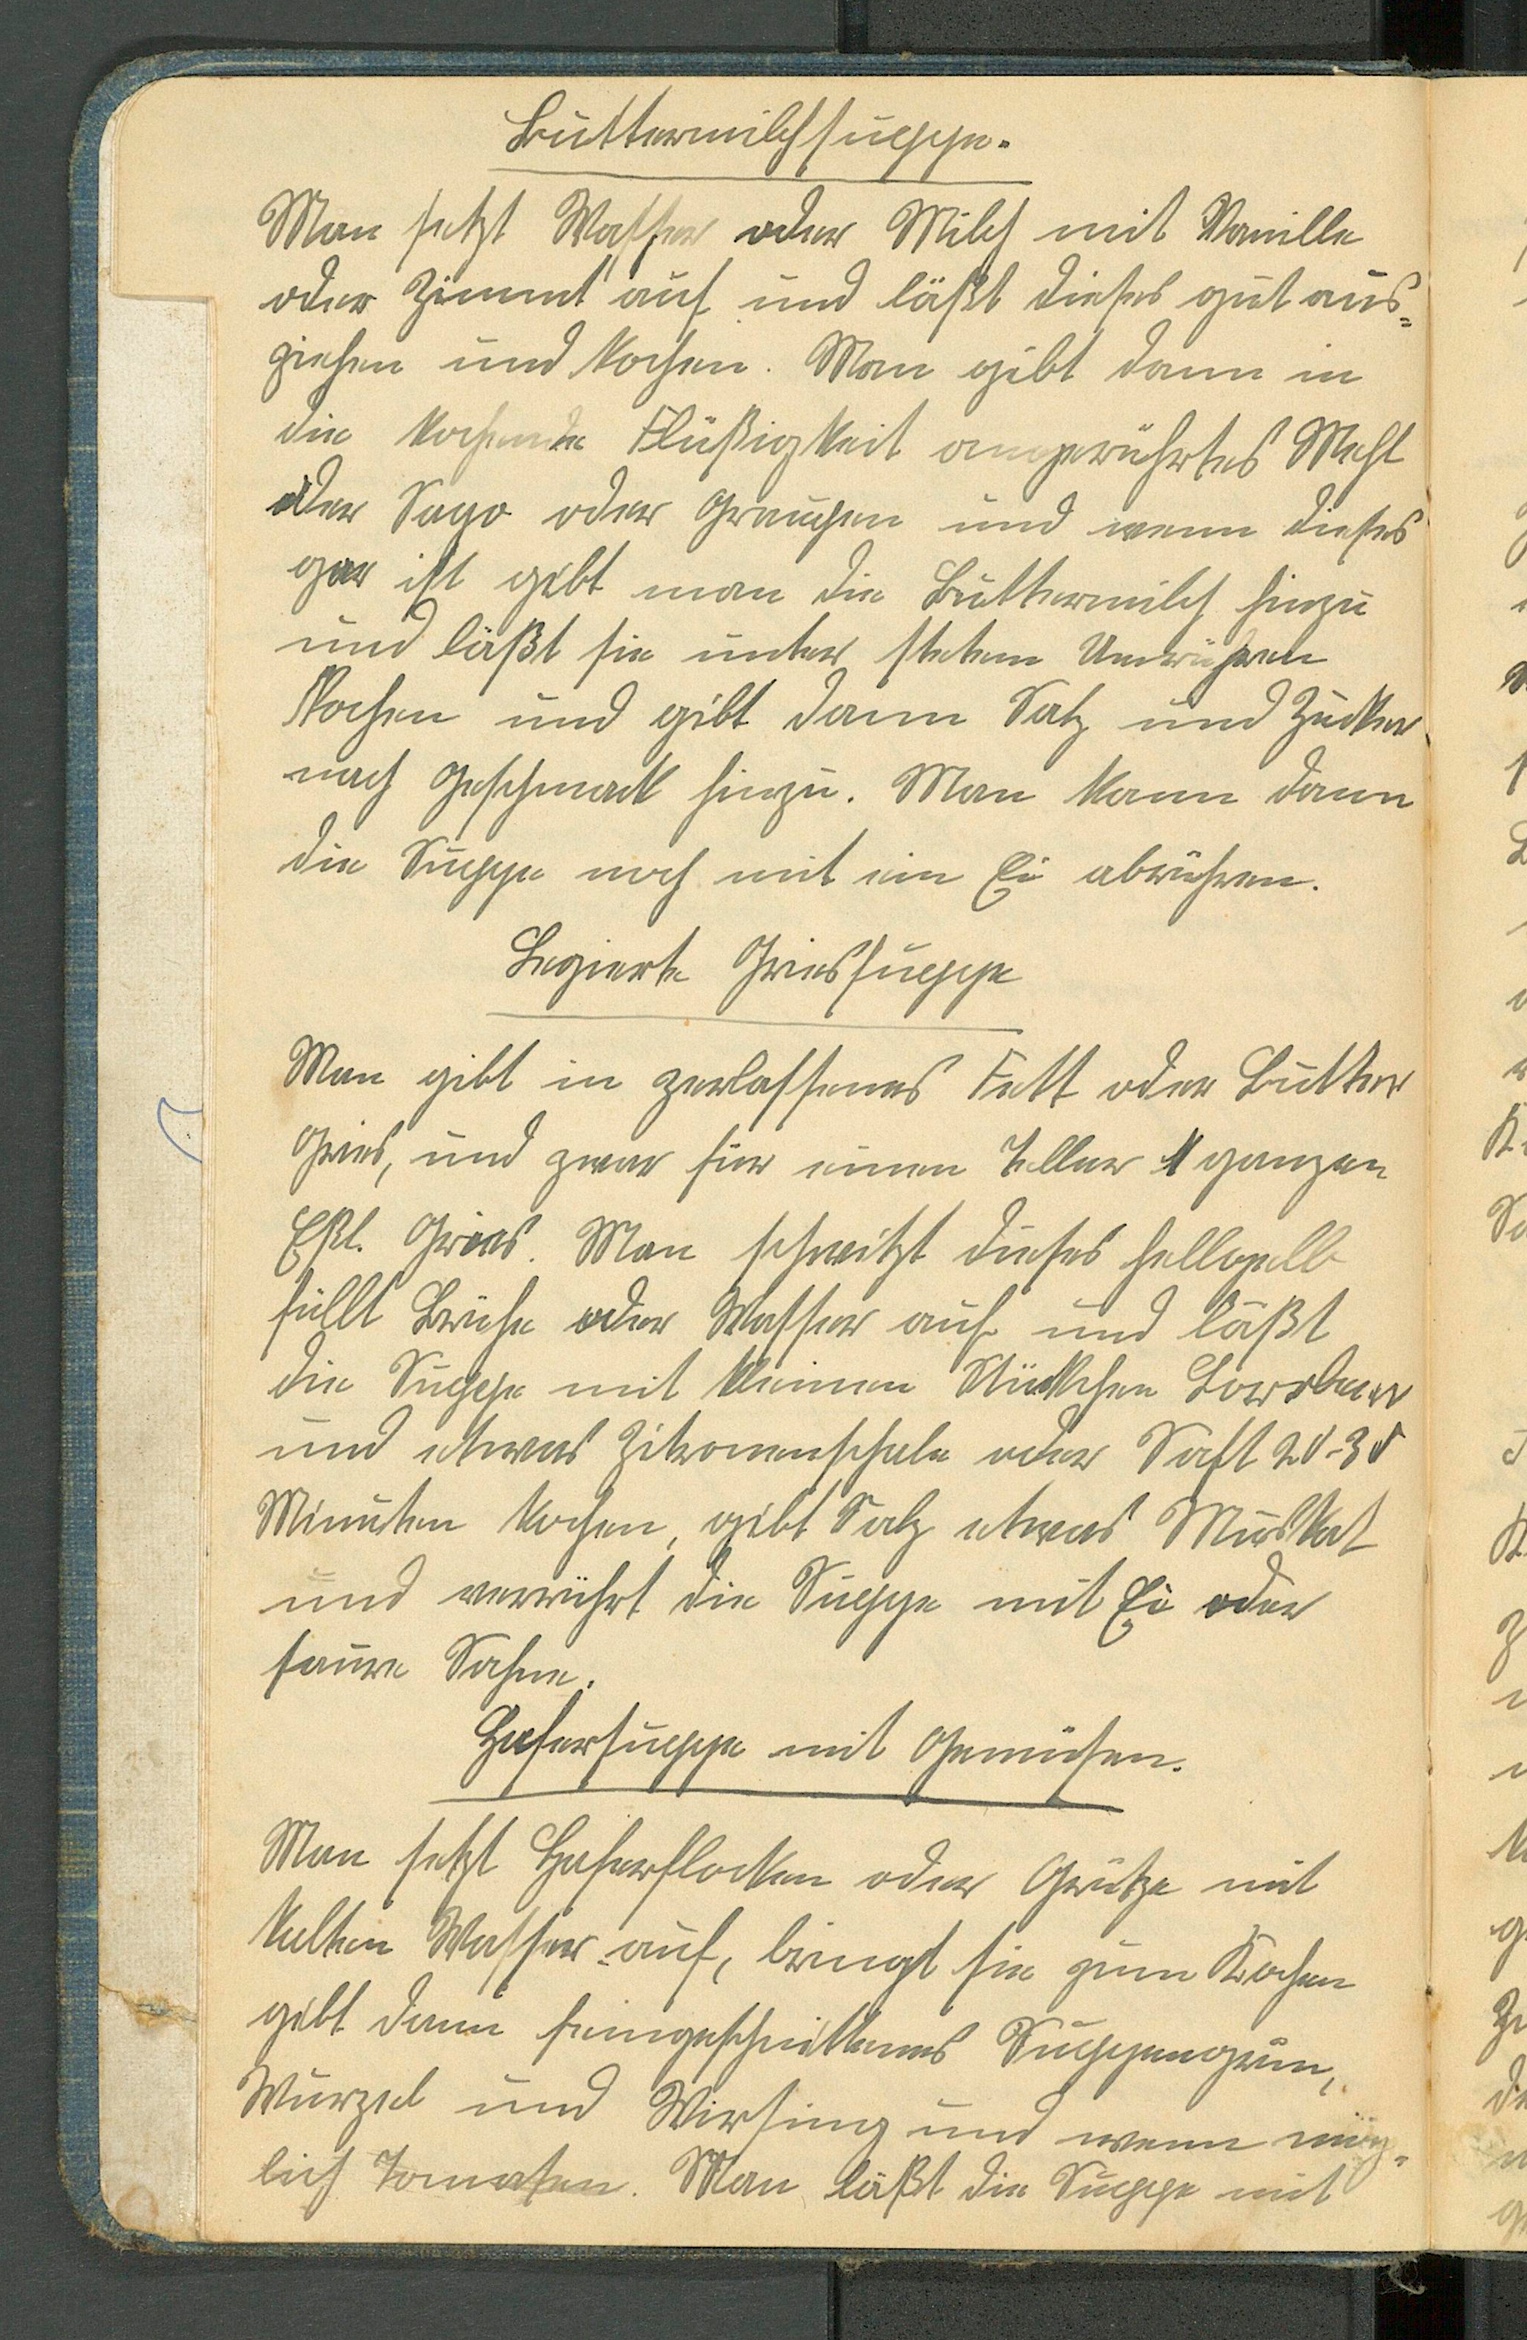 Buttermilchsuppe.
Man setzt Wasser oder Milch mit Vanille
oder Zimmt auf und läßt dieses gut aus=
ziehen und kochen. Man gibt dann in
die kochende Flüßigkeit angerührtes Mehl
oder Sago oder Graupen und wenn dieses
gar ist gibt man die Buttermilch hinzu
und läßt sie unter stetem Umrühren
kochen und gibt dann Salz und Zucker
nach Geschmack hinzu. Man kann dann
die Suppe noch mit ein Ei abrühren.
Legierte Griessuppe
Man gibt in zerlassenes Fett oder Butter
Gries, und zwar für einen Teller 1 ganzen
Eßl. Gries. Man schwitzt dieses hellgelb
füllt Brühe oder Wasser auf und läßt
die Suppe mit kleinen Stückchen Lorrbeer
und etwas Zitronenschale oder Saft 20-30
Minuten kochen, gibt Salz etwas Muskat
und verrührt die Suppe mit Ei oder
saure Sahne.
Hafersuppe mit Gemüsen.
Man setzt Haferflocken oder Grütze mit
kalten Wasser auf, bringt sie zum Kochen
gibt dann feingeschnittenes Suppengrün,
Wurzel und Wirsing und wenn mög-
lich Tomaten. Man läßt die Suppe mit